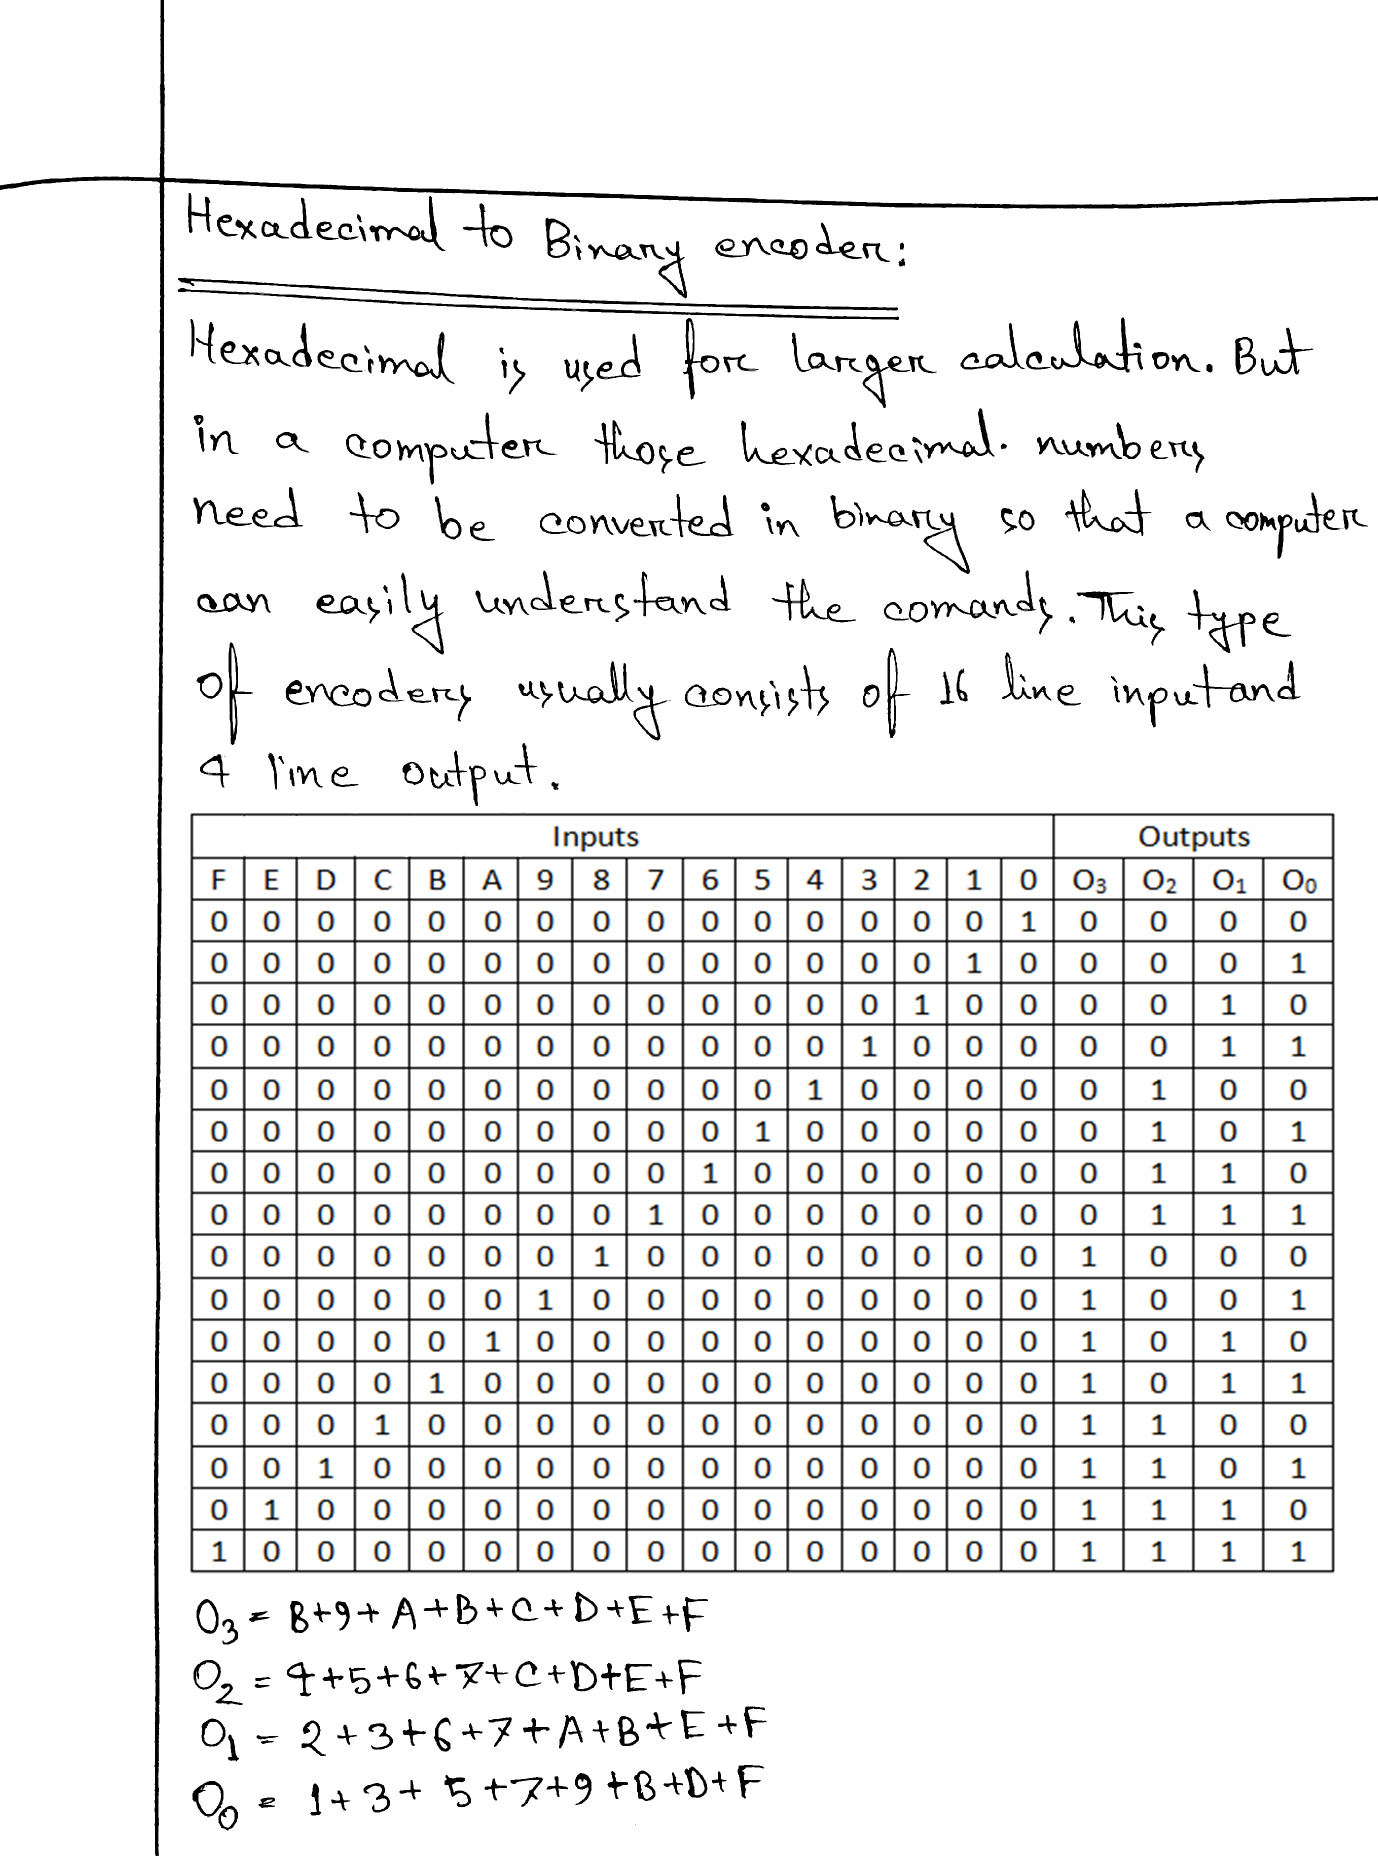 Hexadecimal to Binary encoder:
Hexadecimal is used for larger calculation. But
in a computer those hexadecimal. numbers
need to be converted in binary so that a computer
can easily understand the comands. This type
of encoders usually consists of 16 line input and
4 line output.
Inputs Outputs
F E D C B A 9 8 7 6 5 4 3 2 1 0 O3 O2 O1 O0
0 0 0 0 0 0 0 0 0 0 0 0 0 0 0 1 0 0 0 0
0 0 0 0 0 0 0 0 0 0 0 0 0 0 1 0 0 0 0 1
0 0 0 0 0 0 0 0 0 0 0 0 0 1 0 0 0 0 1 0
0 0 0 0 0 0 0 0 0 0 0 0 1 0 0 0 0 0 1 1
0 0 0 0 0 0 0 0 0 0 0 1 0 0 0 0 0 1 0 0
0 0 0 0 0 0 0 0 0 0 1 0 0 0 0 0 0 1 0 1
0 0 0 0 0 0 0 0 0 1 0 0 0 0 0 0 0 1 1 0
0 0 0 0 0 0 0 0 1 0 0 0 0 0 0 0 0 1 1 1
0 0 0 0 0 0 0 1 0 0 0 0 0 0 0 0 1 0 0 0
0 0 0 0 0 0 1 0 0 0 0 0 0 0 0 0 1 0 0 1
0 0 0 0 0 1 0 0 0 0 0 0 0 0 0 0 1 0 1 0
0 0 0 0 1 0 0 0 0 0 0 0 0 0 0 0 1 0 1 1
0 0 0 1 0 0 0 0 0 0 0 0 0 0 0 0 1 1 0 0
0 0 1 0 0 0 0 0 0 0 0 0 0 0 0 0 1 1 0 1
0 1 0 0 0 0 0 0 0 0 0 0 0 0 0 0 1 1 1 0
1 0 0 0 0 0 0 0 0 0 0 0 0 0 0 0 1 1 1 1
O3 = 8+9+A+B+C+D+E+F
O2 = 4+5+6+7+C+D+E+F
O1 = 2+3+6+7+A+B+E+F
O0 = 1+3+5+7+9+B+D+F